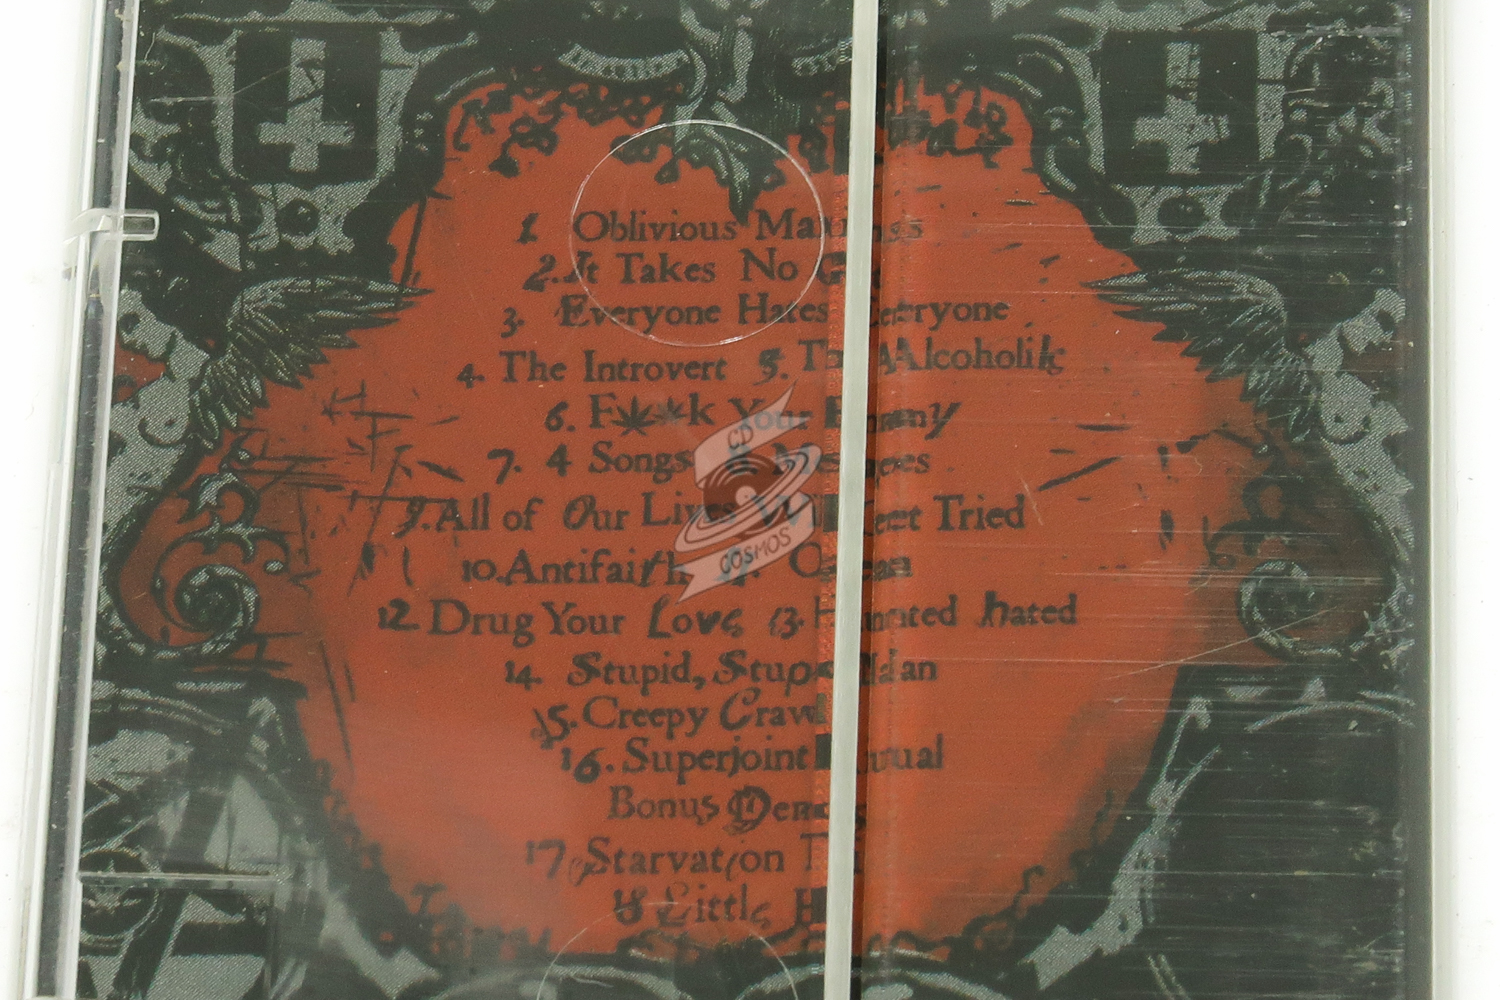 1. Oblivious Ma
2. It Takes No
3. Everyone Hates eryone
4. The Introvert 5. Alcoholik
6. F**k Your Enemy
7. 4 Songs
9. All of Our Lives Will Get Tried
10. Antifaith
12. Drug Your Love 13. Haunted Hated
14. Stupid, Stupid Man
15. Creepy Crawl
16. Superjoint Ritual
Bonus Demos
17. Starvation
18 Little H
CD
COSMOS